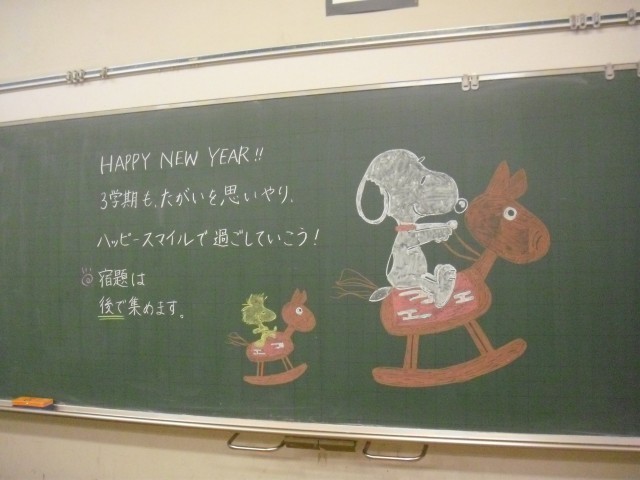 HAPPY NEW YEAR!!
3学期も、たがいを思いやり、
ハッピースマイルで過ごしていこう!
宿題は
後で集めます。